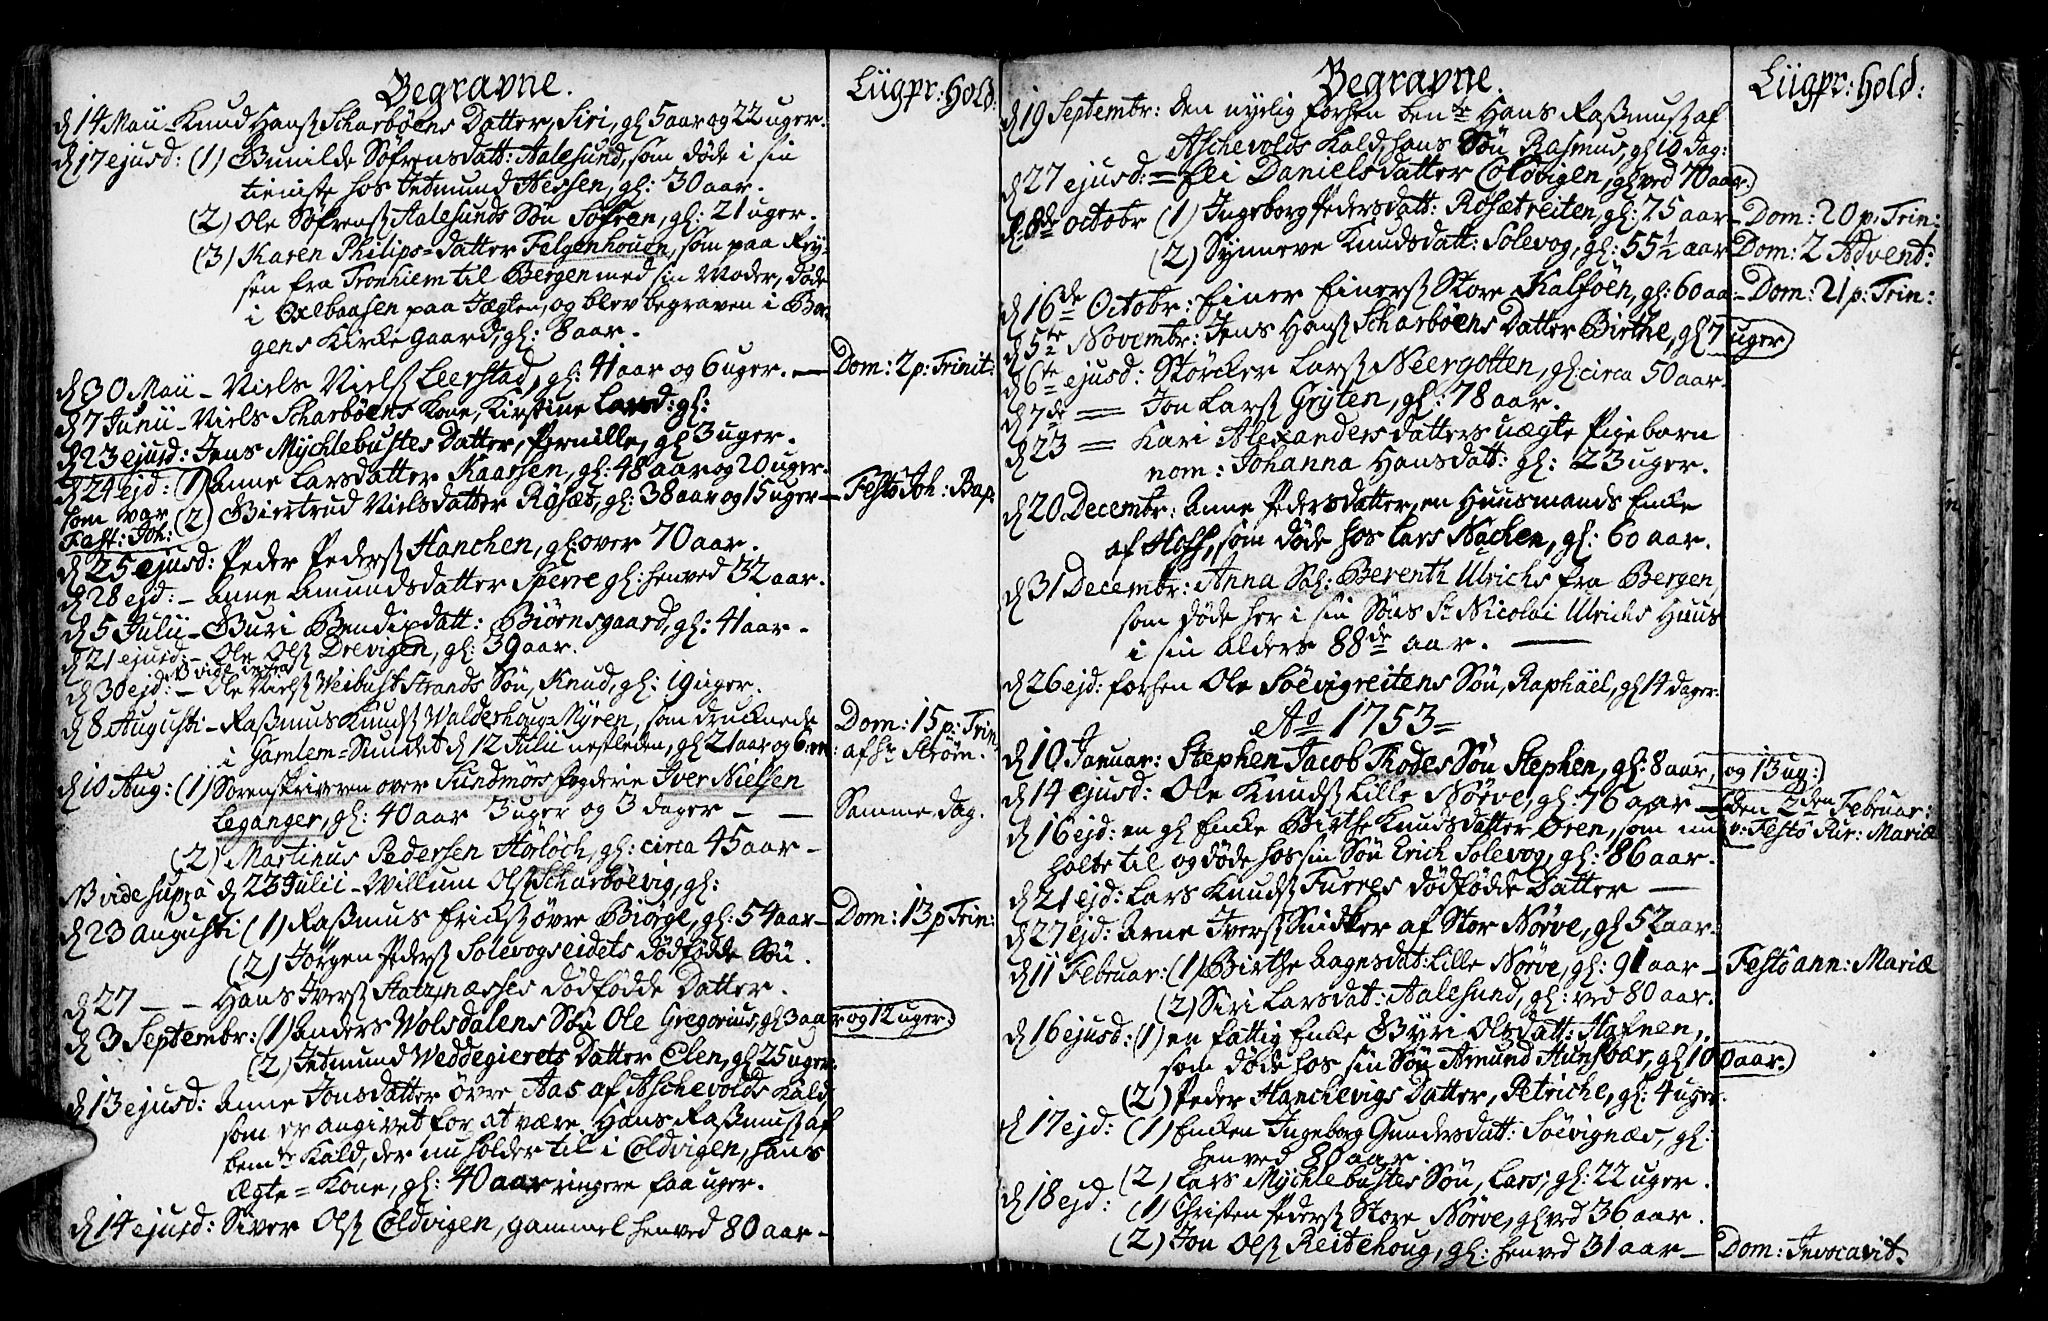 Begravne.
Liigpr: Hold:
d 14 Maii - Knud Hanss Scharböens Datter, Siri, gl 5 aar og 22 uger.
d 17 ejusd: (1) Gunilde Söfrensdatt: Aalesund, som döde i sin
tieniste hos Jetmund Nessen, gl: 30 aar.
(2) Ole Söfrenss Aalesunds Sön Söfren, gl: 21 uger.
(3) Karen Philips=datter Felgenhouen, som paa Rey-
sen fra Tronhiem til Bergen med sin Moder, döde
i Oxlbaasen paa Jægten, og blev begraven i Bor-
gens Kirke Gaard, gl: 8 aar.
d 30 Maii - Niels Nielss Leerstad, gl: 41 aar og 6 uger. — Dom: 2 p: Trinit:
d 7 Junii - Niels Scharböens Kone, Kirstine Larsd: gl:
d 23 ejusd: Jens Mychlebustes Datter, Pernille, gl 3 uger.
d 24 ejd: (1) Anne Larsdatter Kaarsen, gl: 48 aar og 20 uger.
som var (2) Giertrud Nielsdatter Röyset, gl: 38 aar og 15 uger — Festo Joh: Bap:
Fast: Joh:
d 25 ejusd: Peder Pederss Hanchen, gl: over 70 aar.
d 28 ejd: - Anne Amundsdatter Sperre gl: henved 32 aar.
d 5 Julii - Guri Bendixdatt: Biörnsgaard, gl: 41 aar -
d 21 ejusd: - Ole Olss Drevigen, gl: 39 aar.
NB vide infra
d 30 ejd: - Ole Nielss Weibust Strands Sön, Knud, gl: 19 uger.
d 8 Augusti - Rasmus Knudss Walderhoug=Myren, som druknede Dom: 15 p: Trin:
i Gamlem=Sundet d 12 Julii nestleden, gl 21 aar og 6: af Hr Ström.
d 10 Aug: (1) Sorenskriveren over Sundmörs fogderie Iver Nielsen
Leganger, gl: 40 aar 3 uger og 3 dager - — Samme dag.
(2) Martinus Pedersen Störloch, gl: circa 45 aar -
NB vide supra d 23 Julii - Willum Olss Scharböevig, gl:
d 23 Augusti (1) Rasmus Erickss övre Biörge, gl: 54 aar - Dom: 13 p Trin:
(2) Jörgen Pederss Solevogseidets dödfödde Sön.
d 27 - - Hans Iverss Statznæsses dödfödde Datter.
d 3 Septembr: (1) Anders Wolsdalens Sön Ole Gregorius, gl 3 aar og 12 uger.
(2) Jetmund Weddegierets Datter Elen, gl 25 uger.
d 13 ejusd: Anne Jonsdatter övre Aas af Aschevolds Kald
som er angivet for at være Hans Rasmuss af
bemte Kald, der nu holder til i Coldvigen, hans
Ægte=Kone, gl: 40 aar ringere faa uger.
d 14 ejusd: Siver Olss Coldvigen, gammel henved 80 aar -
Begravne.
Liigpr: Hold:
d 19 Septembr: den nylig forhen bente Hans Rasmuss af
Aschevolds Kald, hans Sön Rasmus, gl 10 dag:
d 27 ejusd: = Eli Danielsdatter Coldvigen, gl ved 70 aar.
d 8de octobr (1) Ingeborg Pedersdatt: Rosætreiten, gl: 75 aar - Dom: 20 p. Trin:
(2) Synneve Knudsdatt: Solevog, gl: 55½ aar Dom: 2 Advent:
d 16de Octobr: Einer Einerss Store Kalföen, gl: 60 aa: - Dom: 21 p: Trin:
d 5te Novembr: Jens Hanss Scharböens Datter Birthe, gl 7 uger
d 6te ejusd: Störcker Larss Neergotten, gl: circa 50 aar.
d 7de = Jon Larss Gryten, gl: 78 aar.
d 23 = Kari Alexandersdatters uægte Pigebarn
nom: Johanna Hansdatt: gl: 23 uger.
d 20 Decembr: Anne Pedersdatter, en Huusmands Enke
af Hoff, som döde hos Lars Nachen, gl: 60 aar.
d 31 Decembr: Anna Sl: Berenth Ulrichs fra Bergen,
som döde her i sin Söns Sr Nicolai Ulrichs Huus
i sin Alders 88de aar. —
d 26 ejd: forhen Ole Söevigreitens Sön, Raphäel, gl 14 dager
Ao 1753=
d 10 Januar: Stephen Jacob Thodes Sön Stephen, gl: 8 aar, og 13 ug:
d 14 ejusd: Ole Knudss Lille Nörve, gl: 76 aar — den 2den Februar:
d 16 ejd: en gl Enke Birthe Knudsdatter Ören, som nu v: Festo Pur: Mariæ
holte til og döde hos sin Sön Erich Solevog, gl: 86 aar.
d 21 ejd: Lars Knudss Furres dödfödde Datter —
d 27 ejd: Arne Iverss Snidker af Stor Nörve, gl 52 aar.
d 11 Februar: (1) Birthe Aagesdat: Lille Nörve, gl: 91 aar - Festo ann: Mariæ
(2) Siri Larsdat: Aalesund, gl: ved 80 aar.
d 16 ejusd: (1) en fattig Enke Gyri Olsdatt: Hafnen,
som döde hos sin Sön Amund Hunsbær, gl 100 aar.
(2) Peder Hanchevigs Datter, Petriche, gl: 4 uger.
d 17 ejd: (1) Enken Ingeborg Gundersdatt: Söevignæs, gl:
henved 80 aar.
(2) Lars Mychlebustes Sön, Lars, gl: 22 uger.
d 18 ejd: (1) Christen Pederss Store Nörve, gl ved 36 aar.
(2) Jon Olss Reitehoug, gl: henved 31 aar — Dom: Invocavit: